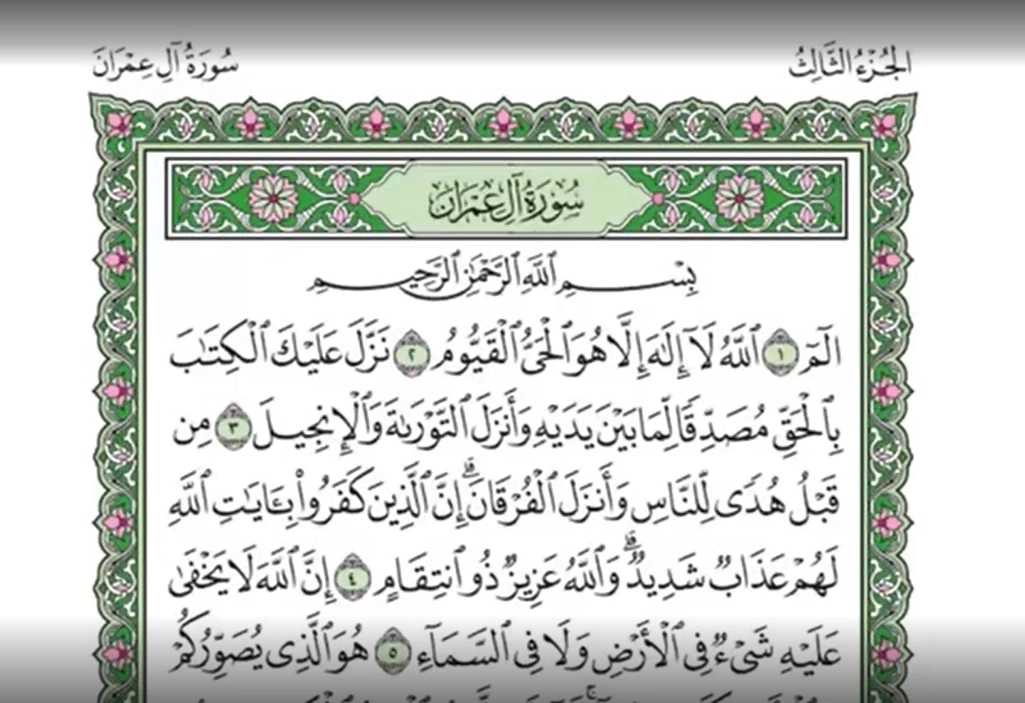 الجزء الثالث
سورة آل عمران
سُورَةُ آلِ عِمْرَانَ
بِسْمِ اللَّهِ الرَّحْمَٰنِ الرَّحِيمِ
الٓمٓ ١ ٱللَّهُ لَآ إِلَٰهَ إِلَّا هُوَ ٱلْحَىُّ ٱلْقَيُّومُ ٢ نَزَّلَ عَلَيْكَ ٱلْكِتَٰبَ
بِٱلْحَقِّ مُصَدِّقًا لِّمَا بَيْنَ يَدَيْهِ وَأَنزَلَ ٱلتَّوْرَىٰةَ وَٱلْإِنجِيلَ ٣ مِن
قَبْلُ هُدًى لِّلنَّاسِ وَأَنزَلَ ٱلْفُرْقَانَ ۗ إِنَّ ٱلَّذِينَ كَفَرُوا۟ بِـَٔايَٰتِ ٱللَّهِ
لَهُمْ عَذَابٌ شَدِيدٌ ۗ وَٱللَّهُ عَزِيزٌ ذُو ٱنتِقَامٍ ٤ إِنَّ ٱللَّهَ لَا يَخْفَىٰ
عَلَيْهِ شَىْءٌ فِى ٱلْأَرْضِ وَلَا فِى ٱلسَّمَآءِ ٥ هُوَ ٱلَّذِى يُصَوِّرُكُمْ